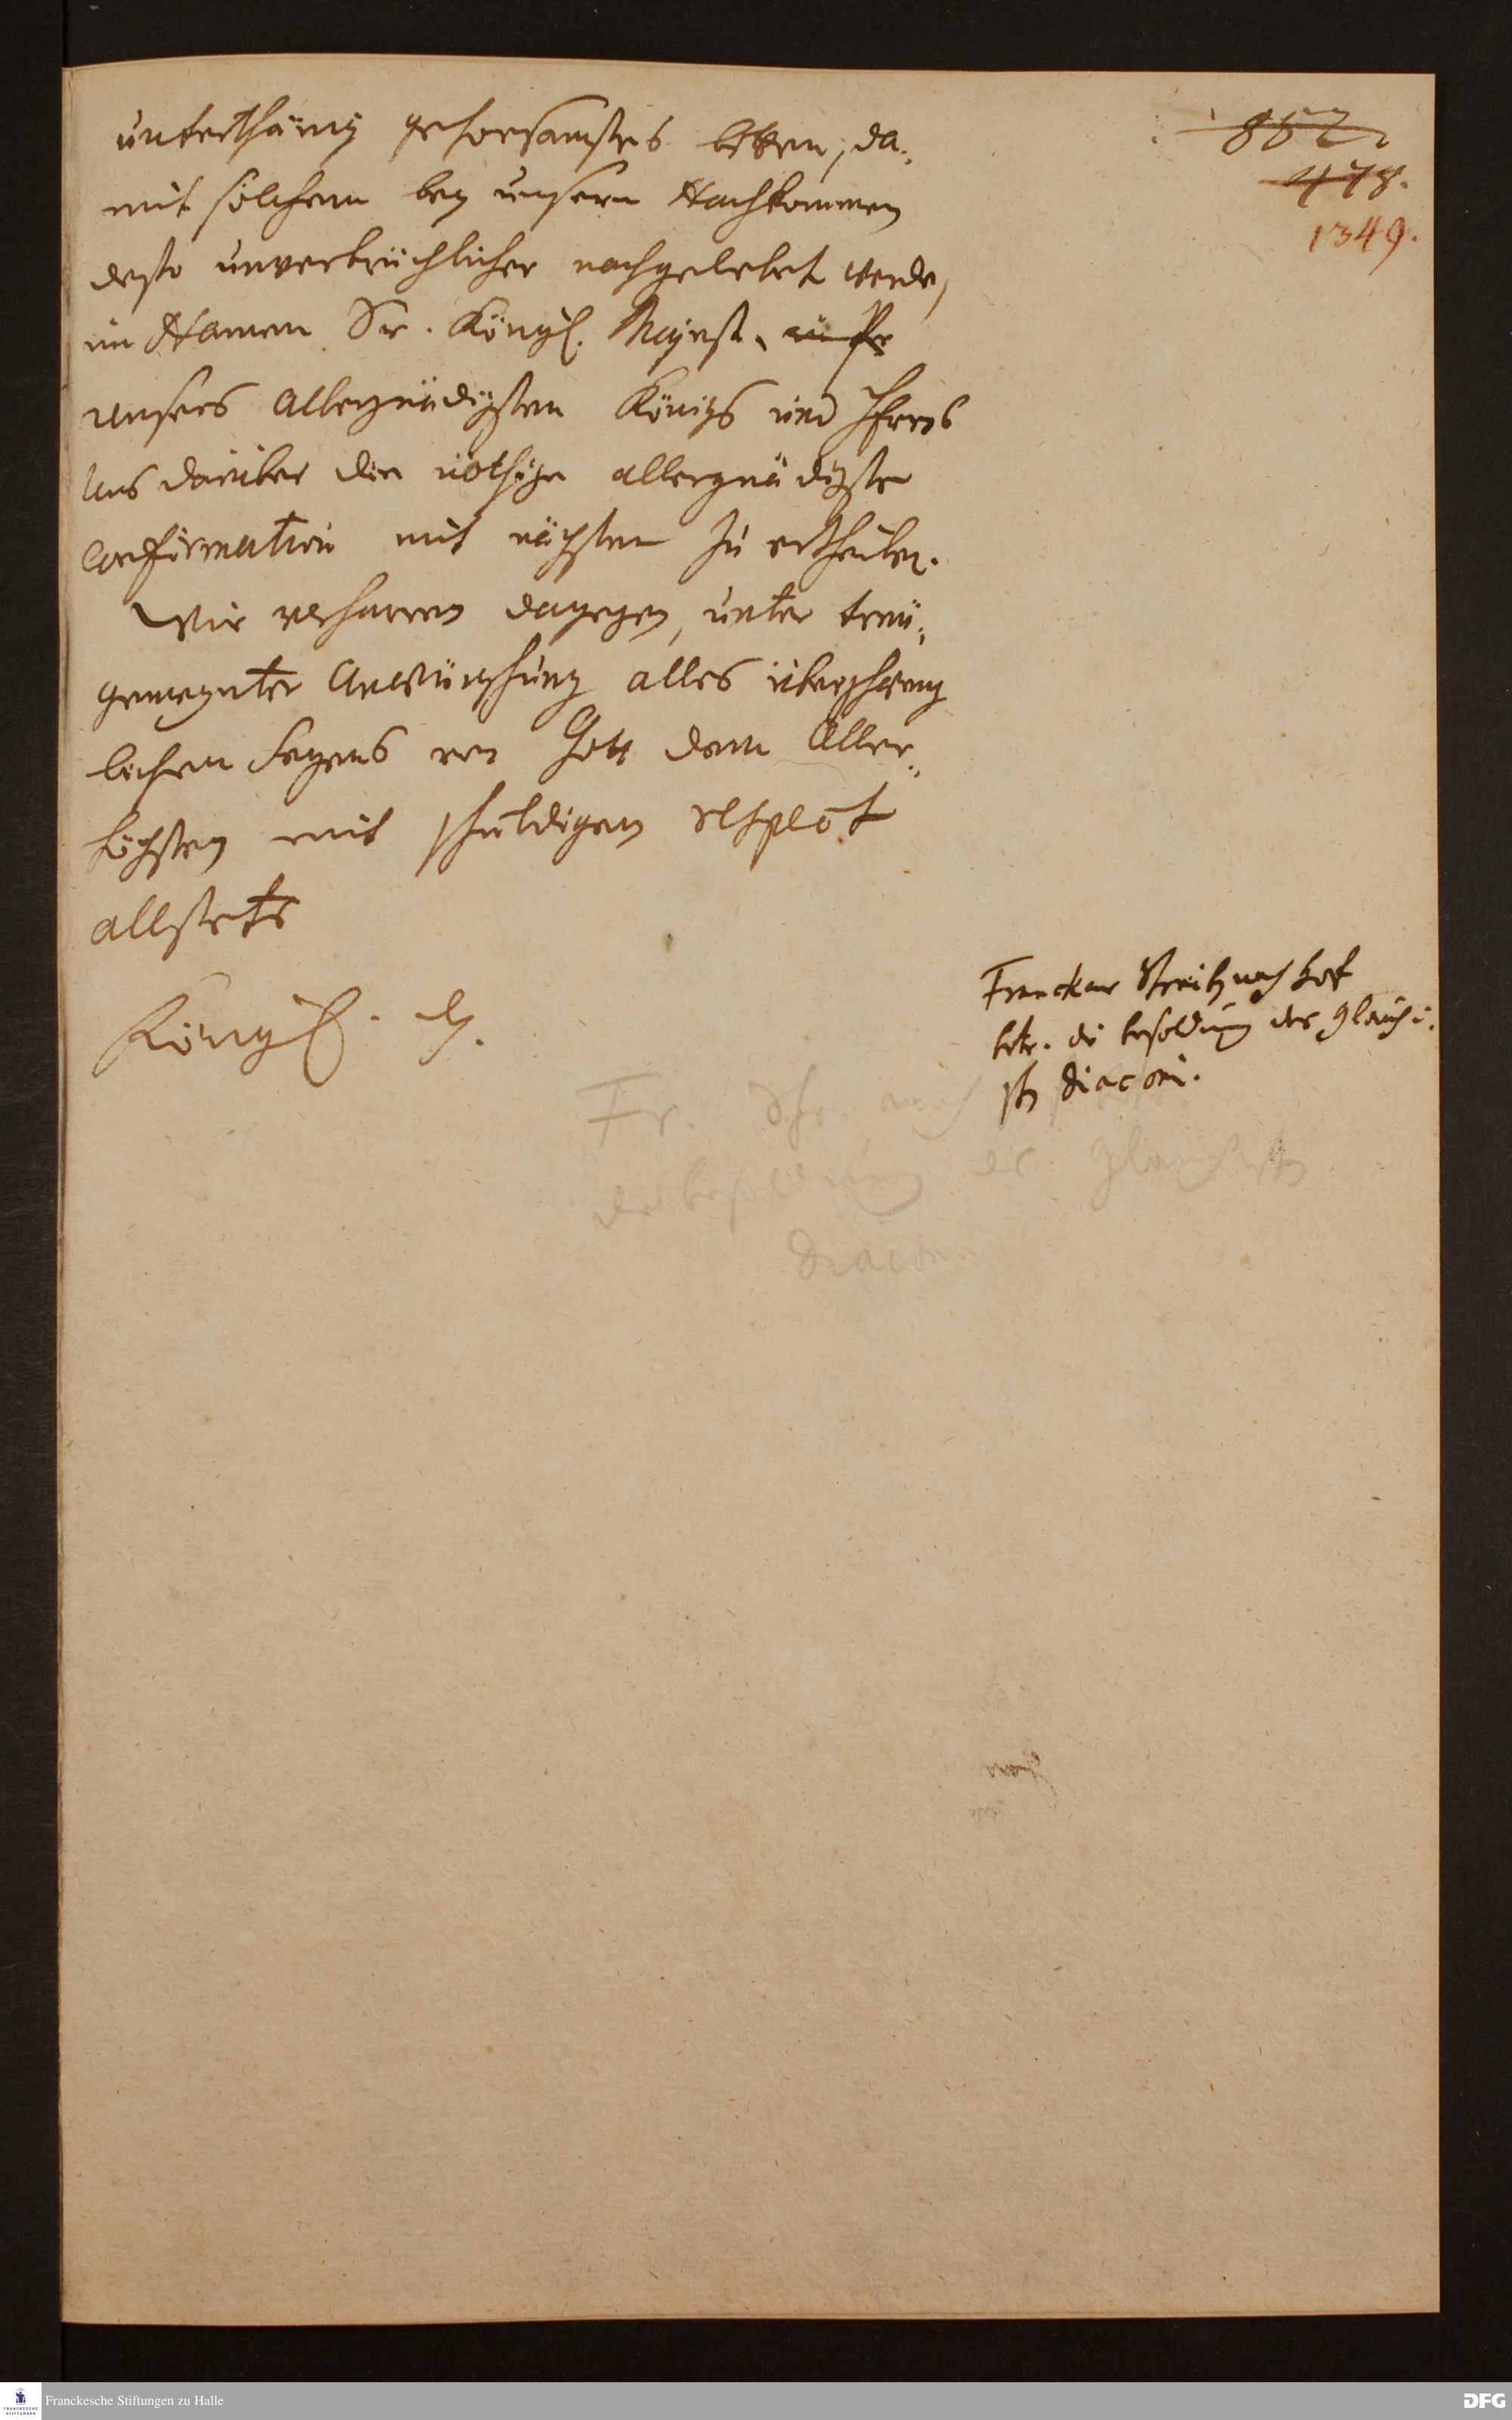 852
478.
1349.
unterthänig gehorsamstes bitten, da-
mit solchem bey unsern Nachkommen
desto unverbrüchlicher nachgelebet werde,
im Namen Sr. Königl. Majest.
unsers allergnädigsten Königs und Herrns
uns darüber die nöthige allergnädigste
Confirmation mit nächsten zu ertheilen.
Wir verharren dagegen, unter treu-
gemeynter Anwünschung alles überschweng
lichen Segens von Gott dem Aller-
höchsten mit schuldigem respect
allstets
Königl.
Franckens Schreiben nach Hof
betr. die besoldung des Glauchi-
sch Diaconi.
Fr. Schr. nach
die besoldung des Glauchisch
Diacon
Franckesche Stiftungen zu Halle
DFG